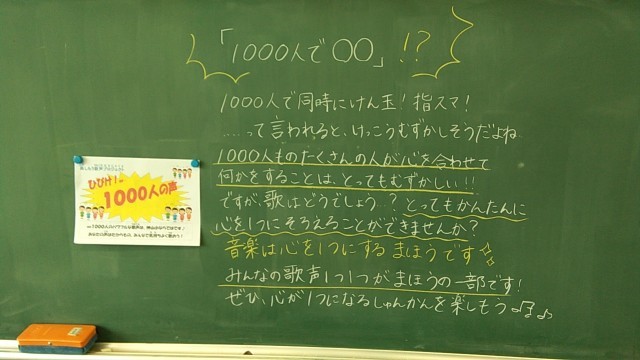 「1000人で〇〇」!?
1000人で同時にけん玉!指スマ!
……って言われると、けっこうむずかしそうだよね
1000人ものたくさんの人が心を合わせて
何かをすることは、とってもむずかしい!!
ですが、歌はどうでしょう…?とってもかんたんに
心を1つにそろえることができませんか?
音楽は心を1つにするまほうです
みんなの歌声1つ1つがまほうの一部です!
ぜひ、心が1つになるしゅんかんを楽しもう♪
ひびけ!
1000人の声